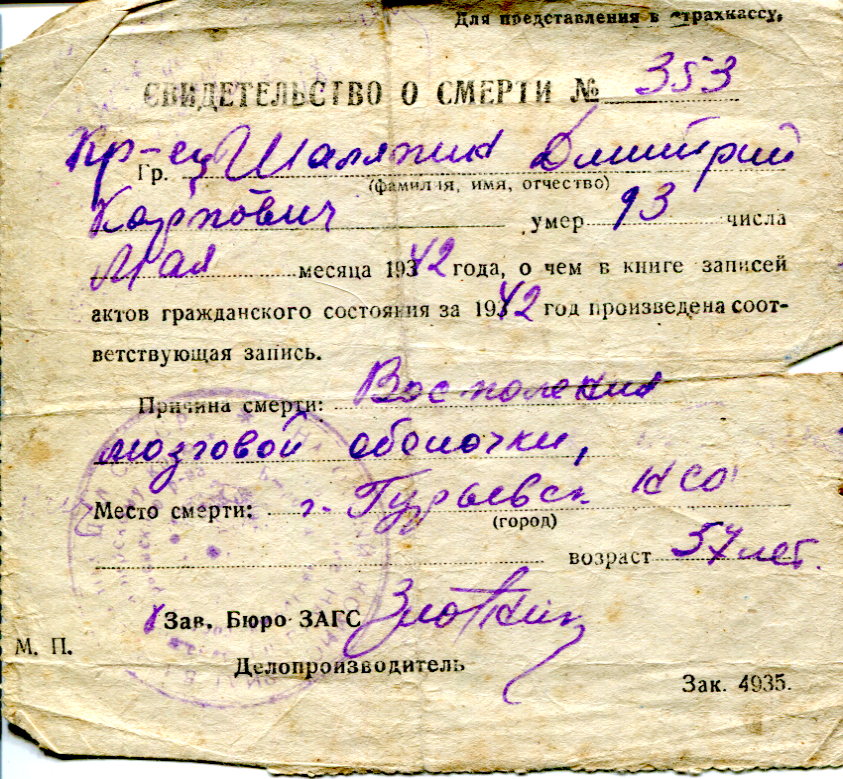 Для представления в страхкассу.
СВИДЕТЕЛЬСТВО О СМЕРТИ № 353
Кр-ец
Гр. Шаляпин Дмитрий
(фамилия, имя, отчество)
Карпович умер 13 числа
Мая месяца 1942 года, о чем в книге записей
актов гражданского состояния за 1942 год произведена соот-
ветствующая запись.
Причина смерти: Воспаления
мозговой оболочки,
Место смерти: г. Гурьевск НСО
(город)
возраст 57 лет.
Зав. Бюро ЗАГС
М. П.
Делопроизводитель
Зак. 4935.